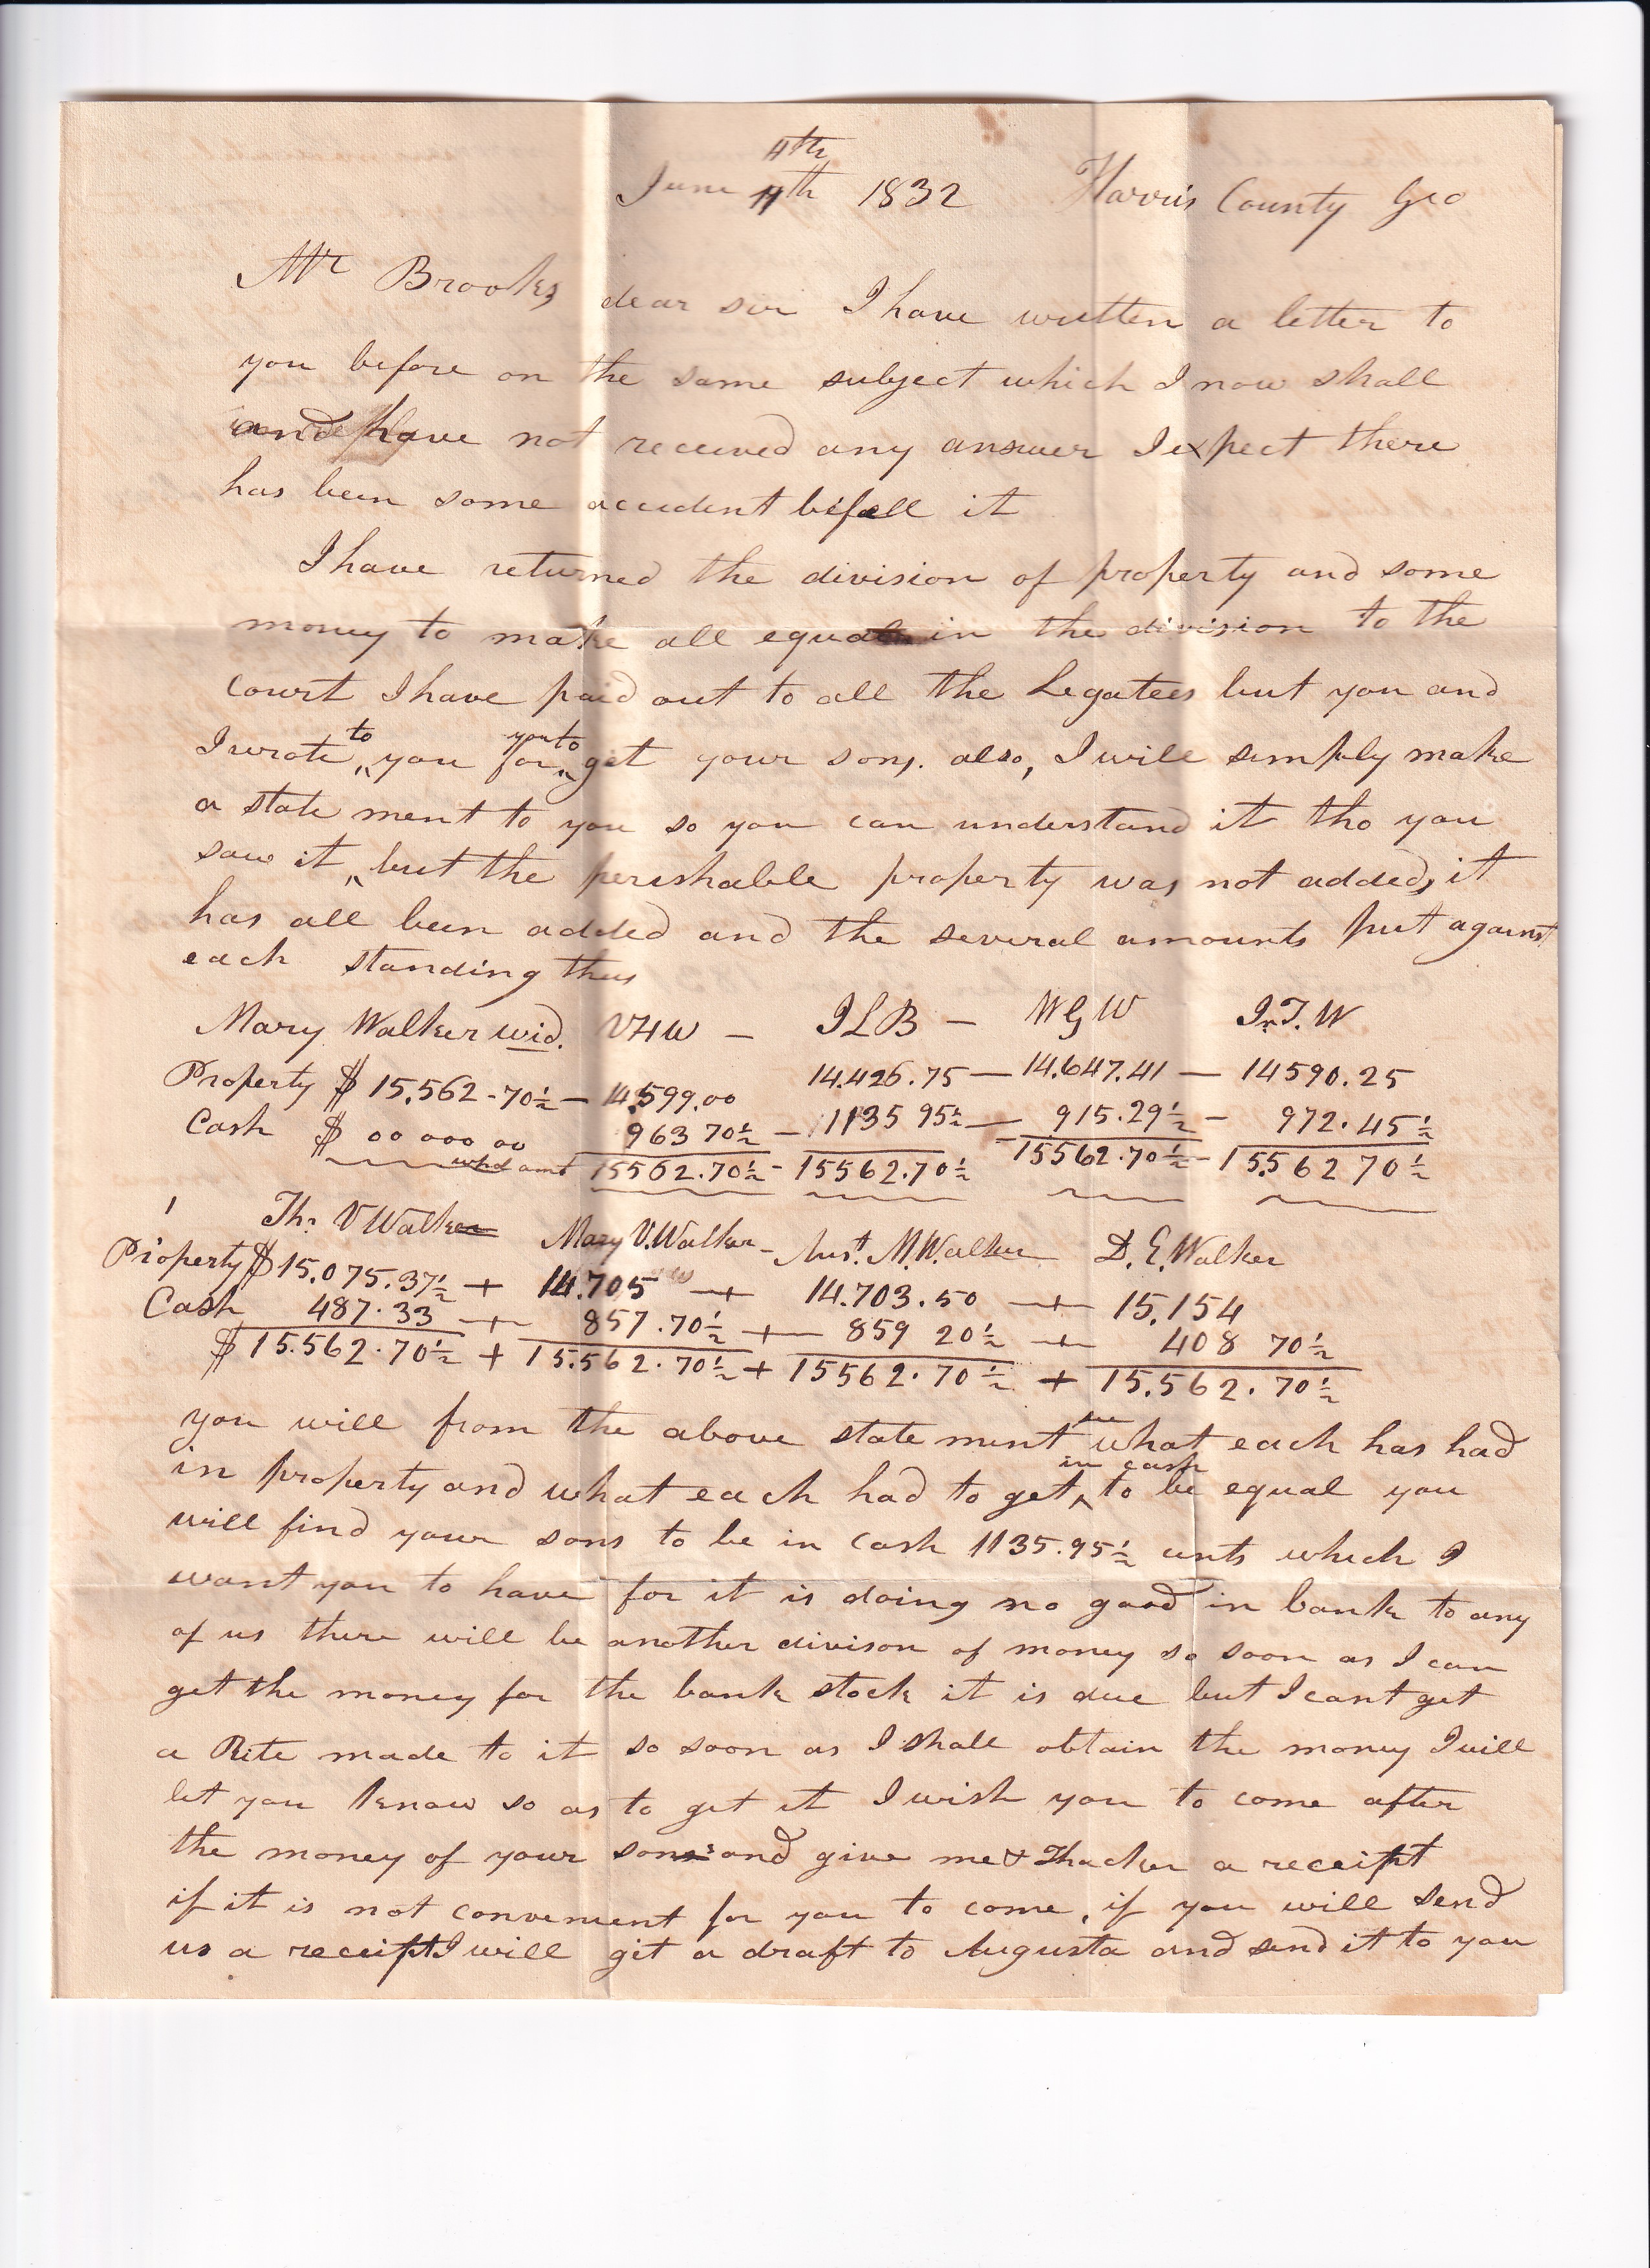 4th
June 4th 1832 Harris County Geo
Mr Brooks dear sir I have written a letter to
you before on the same subject which I now shall
and have not received any answer I expect there
has been some accident befall it
I have returned the division of property and some
money to make all equal in the division to the
court I have paid out to all the Legatees but you and
I wrote to you for you to get your sons. also, I will simply make
a state ment to you so you can understand it tho you
saw it, but the perishable property was not added, it
has all been added and the several amounts put against
each standing thus
Mary Walker wid. VHW – ILB – WGW – Jr.T.W
Property $ 15,562-70½ – 14,599.00 14.426.75 – 14.647.41 – 14590.25
Cash $ 00 000 00 963 70½ – 1135 95½ – 915.29½ – 972.45½
amt 15562.70½ – 15562.70½ – 15562.70½ – 15.562 70½
Th: V Walker Mary V. Walker – Aust. M. Walker D. E. Walker
Property $15.075.37½ + 14.705 + 14.703.50 + 15,154
Cash 487.33 + 857.70½ + 859 20½ + 408 70½
$15.562.70½ + 15.562.70½ + 15562.70½ + 15.562.70½
you will from the above state ment see what each has had
in property and what each had to get in cash to be equal you
will find your sons to be in cash 1135.95½ cents which I
want you to have for it is doing no good in bank to any
of us there will be another divison of money so soon as I can
get the money for the bank stock it is due but I cant get
a Rite made to it so soon as I shall obtain the money I will
let you know so as to get it I wish you to come after
the money of your sons and give me & Thacker a receipt
if it is not convenient for you to come, if you will send
us a receipt I will git a draft to Augusta and send it to you